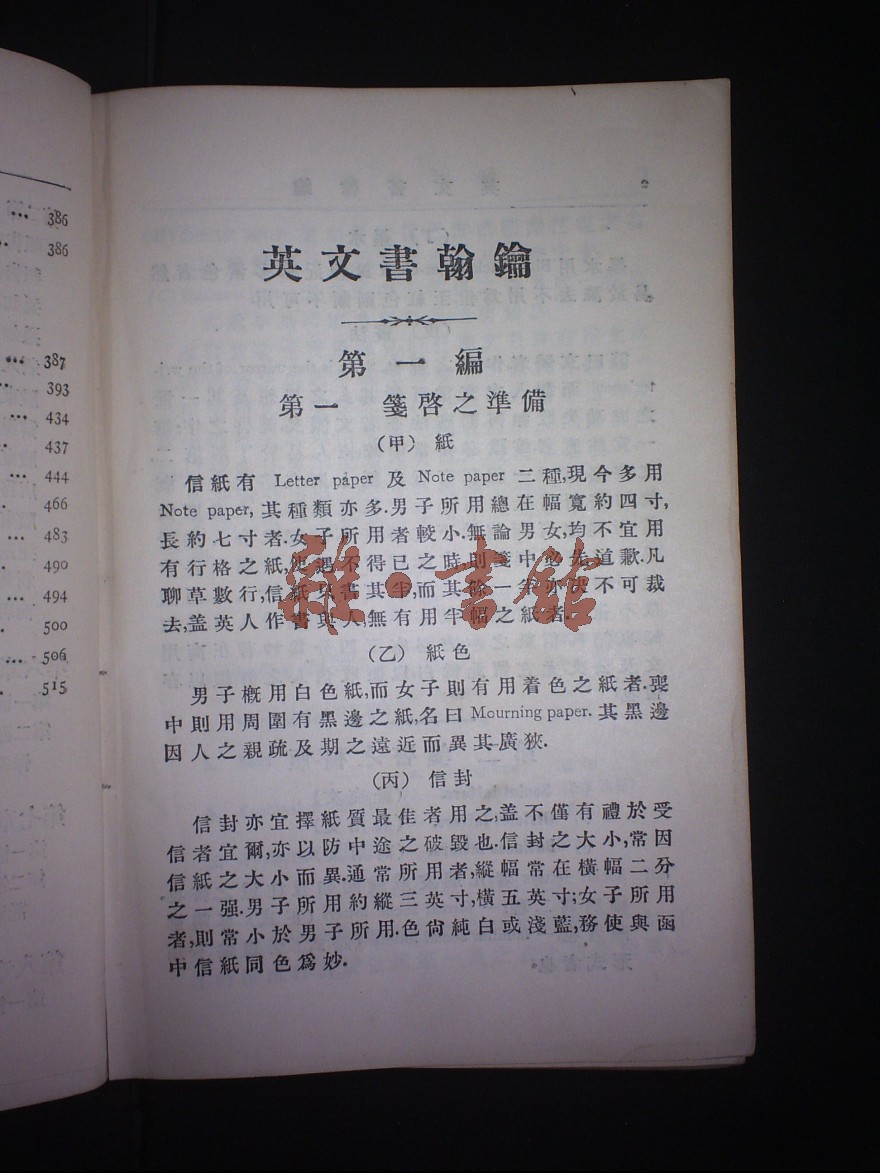 ... 386
386
... 387
393
... 434
437
... 444
466
... 483
490
... 494
500
... 506
515
英文書翰鑰
第一編
第一 箋啓之準備
(甲) 紙
信紙有 Letter paper 及 Note paper 二種,現今多用
Note paper, 其種類亦多.男子所用總在幅寬約四寸,
長約七寸者.女子所用者較小.無論男女,均不宜用
有行格之紙,使遇不得已之時,則箋中必先道歉.凡
聊草數行,信紙只書其半,而其餘一半亦決不可裁
去,盖英人作書與人,無有用半幅之紙者.
(乙) 紙色
男子槪用白色紙,而女子則有用着色之紙者.喪
中則用周圍有黑邊之紙,名曰 Mourning paper. 其黑邊
因人之親疏及期之遠近而異其廣狹.
(丙) 信封
信封亦宜擇紙質最佳者用之,盖不僅有禮於受
信者宜爾,亦以防中途之破毀也.信封之大小,常因
信紙之大小而異.通常所用者,縱幅常在橫幅二分
之一强.男子所用約縱三英寸,橫五英寸;女子所用
者,則常小於男子所用.色尙純白或淺藍,務使與函
中信紙同色爲妙.
雜·書館